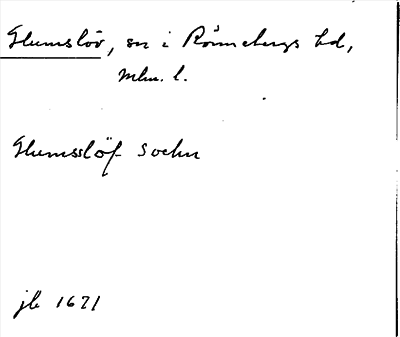 Glumslöv, sn i Rönnebergs hd,
Mhn. l.
Glumsslöf Sochn
jb 1671